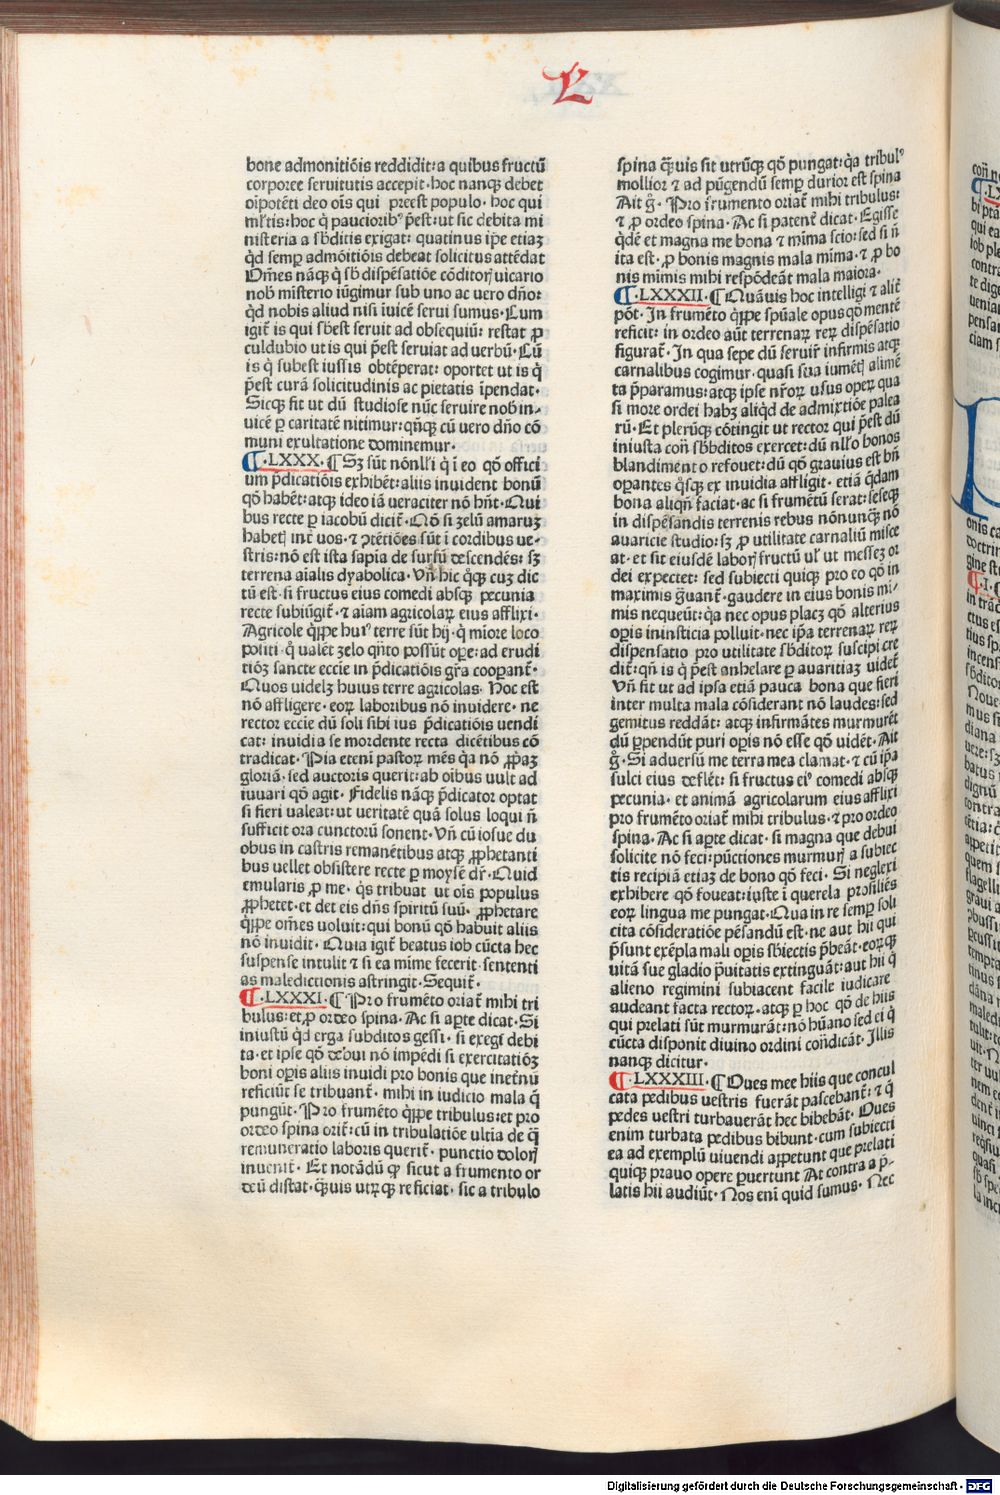 L
bone admonitiōis reddidit: a quibus fructū
corporee seruitutis accepit· hoc nanqꝫ debet
oīpotēti deo oīs qui preest populo· hoc qui
ml̄tis: hoc q̄ paucioribꝰ p̄est: ut sic debita mi
nisteria a sb̄ditis exigat: quatinus ip̄e etiaꝫ
qd̄ semꝑ admōitiōis debeat solicitus attēdat
Om̄es nāqꝫ q̄ sb̄ dispēsatiōe cōditorꝭ uicario
nob̄ misterio iūgimur sub uno ac uero dn̄o:
qd̄ nobis aliud nisi iuicē serui sumus· Cum
igit̄ is qui sb̄est seruit ad obsequiū: restat ꝓ
culdubio ut is qui p̄est seruiat ad uerbū· Cū
is q̄ subest iussis obtēperat: oportet ut is q̄
p̄est curā solicitudinis ac pietatis īpendat·
Sicqꝫ fit ut dū studiose nūc seruire nob̄ in-
uicē ꝑ caritatē nitimur: qn̄qꝫ cū uero dn̄o cō
muni exultatione dominemur·
¶·LXXX·¶Sꝫ sūt nōnl̄li q̄ ī eo qō offici
um p̄dicatiōis exhibēt: aliis inuident bonū
qō habēt: atqꝫ ideo iā ueraciter nō hn̄t· Qui
bus recte ꝑ iacobū dicit̄· Qō si zelū amaruꝫ
habetꝭ int̄ uos· ⁊ ꝯtētiōes sūt ī cordibus ue-
stris: nō est ista sapia de sursū descendēs: sꝫ
terrena aīalis dyabolica· Vn̄ hic q̊qꝫ cuꝫ dic
tū est· si fructus eius comedi absqꝫ pecunia
recte subiūgit̄· ⁊ aīam agricolaꝝ eius afflixi·
Agricole q̄ꝑpe huiꝰ terre sūt hij· q̄ miore loco
politi· q̄ ualēt zelo qn̄to possūt oꝑe: ad erudi
tiōꝫ sancte eccīe in p̄dicatiōis gr̄a cooꝑant̄·
Quos uidelꝫ huius terre agricolas· Hoc est
nō affligere· eoꝝ laboribus nō inuidere· ne
rector eccīe dū soli sibi ius p̄dicatiōis uendi
cat: inuidia se mordente recta dicētibus cō
tradicat· Pia etenī pastoꝝ mēs qa nō ꝓpaꝫ
gloriā· sed auctoris querit: ab oībus uult ad
iuuari qō agit· Fidelis nāqꝫ p̄dicator optat
si fieri ualeat: ut ueritatē quā solus loqui n̄
sufficit ora cunctorū sonent· Vn̄ cū iosue du
obus in castris remanētibus atqꝫ ꝓphetanti
bus uellet obsistere recte ꝑ moysē dr̄· Quid
emularis ꝓ me· qs̄ tribuat ut oīs populus
ꝓphetet· et det eis dn̄s spiritū suū· ꝓphetare
q̄ꝑpe om̄es uoluit: qui bonū qō habuit aliis
nō inuidit· Quia igit̄ beatus iob cūcta hec
suspense intulit ⁊ si ea mīme fecerit· sententi
as maledictionis astringit· Sequit̄·
¶·LXXXI·¶Pro frumēto oriat̄ mihi tri
bulus: et ꝓ ordeo spina· Ac si aꝑte dicat· Si
iniustū qd̄ erga subditos gessi· si exegī debi
ta· et ipse qō debui nō impēdi si exercitatiōꝫ
boni oꝑis aliis inuidi pro bonis que inet̄nū
reficiūt se tribuant̄· mihi in iudicio mala q̄
pungūt· Pro frumēto q̄ꝑpe tribulus: et pro
ordeo spina orit̄: cū in tribulatiōe ultīa de q̄
remuneratio laboris querit̄· punctio dolorꝭ
inuenit̄· Et notādū ꝙ sicut a frumento or
deū distat· q̄uis utꝝqꝫ reficiat· sic a tribulo
spina q̄uis sit utrūqꝫ qō pungat: qa tribulꝰ
mollior ⁊ ad pūgendū semꝑ durior est spina
Ait g̊· Pro frumento oriat̄ mihi tribulus:
⁊ ꝓ ordeo spina· Ac si patent̄ dicat· Egisse
q̄dē et magna me bona ⁊ mīma scio: sed si n̄
ita est· ꝓ bonis magnis mala mīma· ⁊ ꝓ bo
nis mīmis mihi respōdeāt mala maiora·
¶·LXXXII·¶Quāuis hoc intelligi ⁊ alit̄
pōt· In frumēto q̄ꝑpe spūale opus qō mentē
reficit: in ordeo aūt terrenaꝝ reꝝ dispēsatio
figurat̄· In qua sepe dū seruir̄ infirmis atqꝫ
carnalibus cogimur· quasi sua iumētꝭ alimē
ta p̄paramus: atqꝫ ipse nr̄oꝝ usus oꝑeꝝ qua
si more ordei habꝫ aliqd̄ de admixtiōe palea
rū· Et plerūqꝫ cōtingit ut rector qui p̄est dū
iniusta con̄ sb̄ditos exercet: dū nl̄lo bonos
blandimento refouet: dū qō grauius est bn̄
oꝑantes q̊sqꝫ ex inuidia affligit· etiā q̄dam
bona aliqn̄ faciat· ac si frumētū serat: seseqꝫ
in dispēsandis terrenis rebus nōnunqꝫ nō
auaricie studio: sꝫ ꝓ utilitate carnaliū misce
at· et sit eiusdē laborꝭ fructū ul̄ ut messeꝫ or
dei expectet: sed subiecti quiqꝫ pro eo qō in
maximis gꝰuant̄· gaudere in eius bonis mi-
mis nequeūt: qa nec opus placꝫ qō alterius
oꝑis iniusticia polluit· nec ip̄a terrenaꝝ reꝝ
dispensatio pro utilitate sb̄ditoꝝ suscipi cre
dit̄: qn̄ is q̄ p̄est anhelare ꝑ auaritiaꝫ uidet̄
Vn̄ fit ut ad ipsa etiā pauca bona que fieri
inter multa mala cōsiderant nō laudes: sed
gemitus reddāt: atqꝫ infirmātes murmurēt
dū ꝑpendūt puri oꝑis nō esse qō uidēt· Ait
g̊· Si aduersū me terra mea clamat· ⁊ cū ip̄a
sulci eius deflēt: si fructus eiꝰ comedi absqꝫ
pecunia· et animā agricolarum eius afflixi
pro frumēto oriat̄ mihi tribulus· ⁊ pro ordeo
spina· Ac si aꝑte dicat· si magna que debui
solicite nō feci: pūctiones murmurꝭ a subiec
tis recipiā etiaꝫ de bono qō feci· Si neglexi
exhibere qō foueat: iuste ī querela prosiliēs
eoꝝ lingua me pungat· Qua in re semꝑ soli
cita cōsideratiōe pēsandū est· ne aut hii qui
p̄sunt exēpla mali oꝑis sb̄iectis p̄beāt· eoꝝqꝫ
uitā sue gladio p̄uitatis extinguāt: aut hii q̄
alieno regimini subiacent facile iudicare
audeant facta rectoꝝ· atqꝫ ꝑ hoc qō de hiis
qui prelati sūt murmurāt: nō hūano sed ei q̄
cūcta disponit diuino ordini con̄dicāt· Illis
nanqꝫ dicitur·
¶·LXXXIII·¶Oues mee hiis que concul
cata pedibus uestris fuerāt pascebant̄: ⁊ q̄
pedes uestri turbauerāt hec bibebāt· Oues
enim turbata pedibus bibunt· cum subiecti
ea ad exemplū uiuendi aꝑpetunt que prelati
quiqꝫ prauo opere ꝑuertunt At contra a p̄-
latis hii audiūt· Nos enī quid sumus· Nec
Digitalisierung gefördert durch die Deutsche Forschungsgemeinschaft - DFG